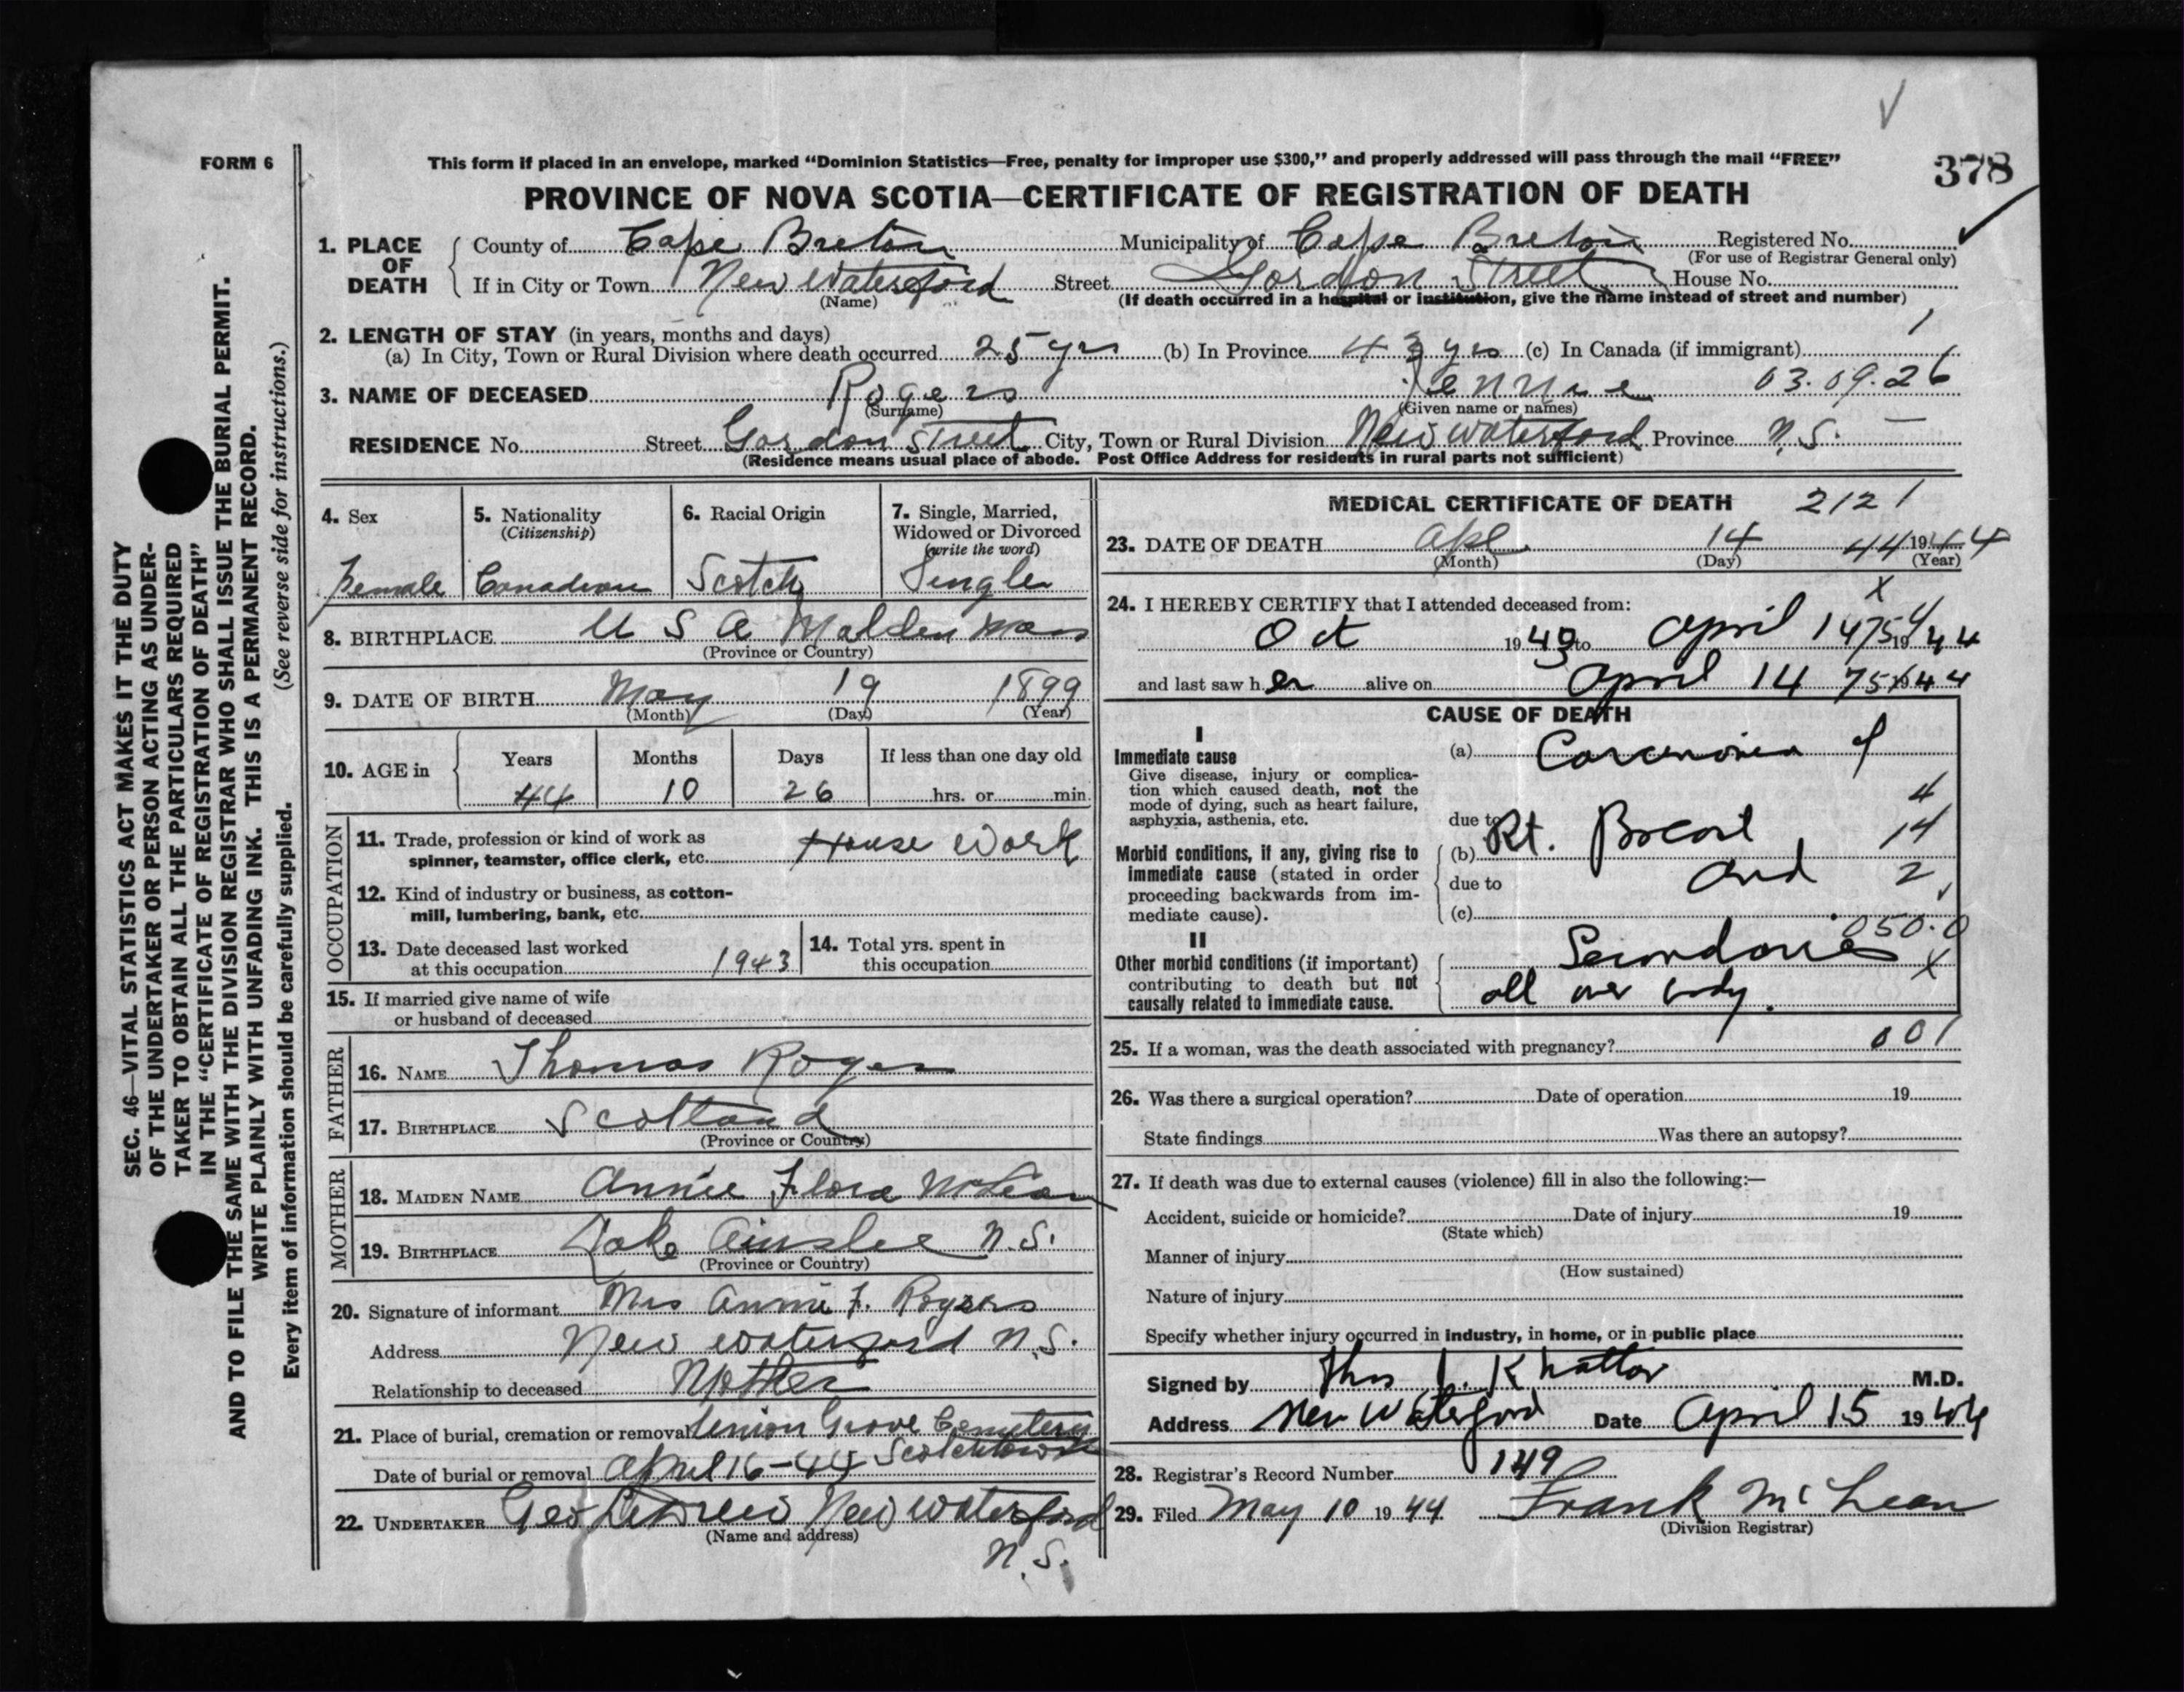 378
FORM 6
This form if placed in an envelope, marked “Dominion Statistics—Free, penalty for improper use $300,” and properly addressed will pass through the mail “FREE”
PROVINCE OF NOVA SCOTIA—CERTIFICATE OF REGISTRATION OF DEATH
SEC. 46—VITAL STATISTICS ACT MAKES IT THE DUTY
OF THE UNDERTAKER OR PERSON ACTING AS UNDER-
TAKER TO OBTAIN ALL THE PARTICULARS REQUIRED
IN THE “CERTIFICATE OF REGISTRATION OF DEATH”
AND TO FILE THE SAME WITH THE DIVISION REGISTRAR WHO SHALL ISSUE THE BURIAL PERMIT.
WRITE PLAINLY WITH UNFADING INK. THIS IS A PERMANENT RECORD.
(See reverse side for instructions.)
Every item of information should be carefully supplied.
1. PLACE OF DEATH
County of Cape Breton Municipality of Cape Breton Registered No.
(For use of Registrar General only)
If in City or Town New Waterford Street Gordon Street House No.
(Name) (If death occurred in a hospital or institution, give the name instead of street and number)
2. LENGTH OF STAY (in years, months and days) 1
(a) In City, Town or Rural Division where death occurred 25 yrs (b) In Province 43 yrs (c) In Canada (if immigrant)
3. NAME OF DECEASED Rogers Jennie 03.09.26
(Surname) (Given name or names)
RESIDENCE No. Street Gordon Street City, Town or Rural Division New Waterford Province N.S. —
(Residence means usual place of abode. Post Office Address for residents in rural parts not sufficient)
4. Sex
Female
5. Nationality
(Citizenship)
Canadian
6. Racial Origin
Scotch
7. Single, Married,
Widowed or Divorced
(write the word)
Single
8. BIRTHPLACE U S A Malden Mass
(Province or Country)
9. DATE OF BIRTH May 19 1899
(Month) (Day) (Year)
10. AGE in
Years Months Days If less than one day old
44 10 26 hrs. or min.
OCCUPATION
11. Trade, profession or kind of work as
spinner, teamster, office clerk, etc. House Work
12. Kind of industry or business, as cotton-
mill, lumbering, bank, etc.
13. Date deceased last worked
at this occupation 1943
14. Total yrs. spent in
this occupation
15. If married give name of wife
or husband of deceased
FATHER
16. NAME Thomas Rogers
17. BIRTHPLACE Scotland
(Province or Country)
MOTHER
18. MAIDEN NAME Annie Flora McLean
19. BIRTHPLACE Lake Ainslee N.S.
(Province or Country)
20. Signature of informant Mrs Annie F. Rogers
Address New Waterford N.S.
Relationship to deceased Mother
21. Place of burial, cremation or removal Union Grove Cemetery
Scotchtown
Date of burial or removal April 16-44
22. UNDERTAKER Geo New Waterford
(Name and address)
N.S.
MEDICAL CERTIFICATE OF DEATH 2121
23. DATE OF DEATH Apl 14 44 1944
(Month) (Day) (Year)
X
24. I HEREBY CERTIFY that I attended deceased from:
Oct 1943 to April 14 75 1944
and last saw her alive on April 14 75 1944
CAUSE OF DEATH
I
Immediate cause
Give disease, injury or complica-
tion which caused death, not the
mode of dying, such as heart failure,
asphyxia, asthenia, etc.
(a) Carcinoma of
4
due to
Morbid conditions, if any, giving rise to
immediate cause (stated in order
proceeding backwards from im-
mediate cause).
(b) Rt. Breast 14
due to and 2
(c)
050.0
II
Other morbid conditions (if important)
contributing to death but not
causally related to immediate cause.
Secondaries X
all over body.
25. If a woman, was the death associated with pregnancy? 001
26. Was there a surgical operation? Date of operation 19
State findings Was there an autopsy?
27. If death was due to external causes (violence) fill in also the following:—
Accident, suicide or homicide? Date of injury 19
(State which)
Manner of injury
(How sustained)
Nature of injury
Specify whether injury occurred in industry, in home, or in public place
Signed by Thos J. Khattar M.D.
Address New Waterford Date April 15 1944
28. Registrar's Record Number 149
29. Filed May 10 1944 Frank McLean
(Division Registrar)